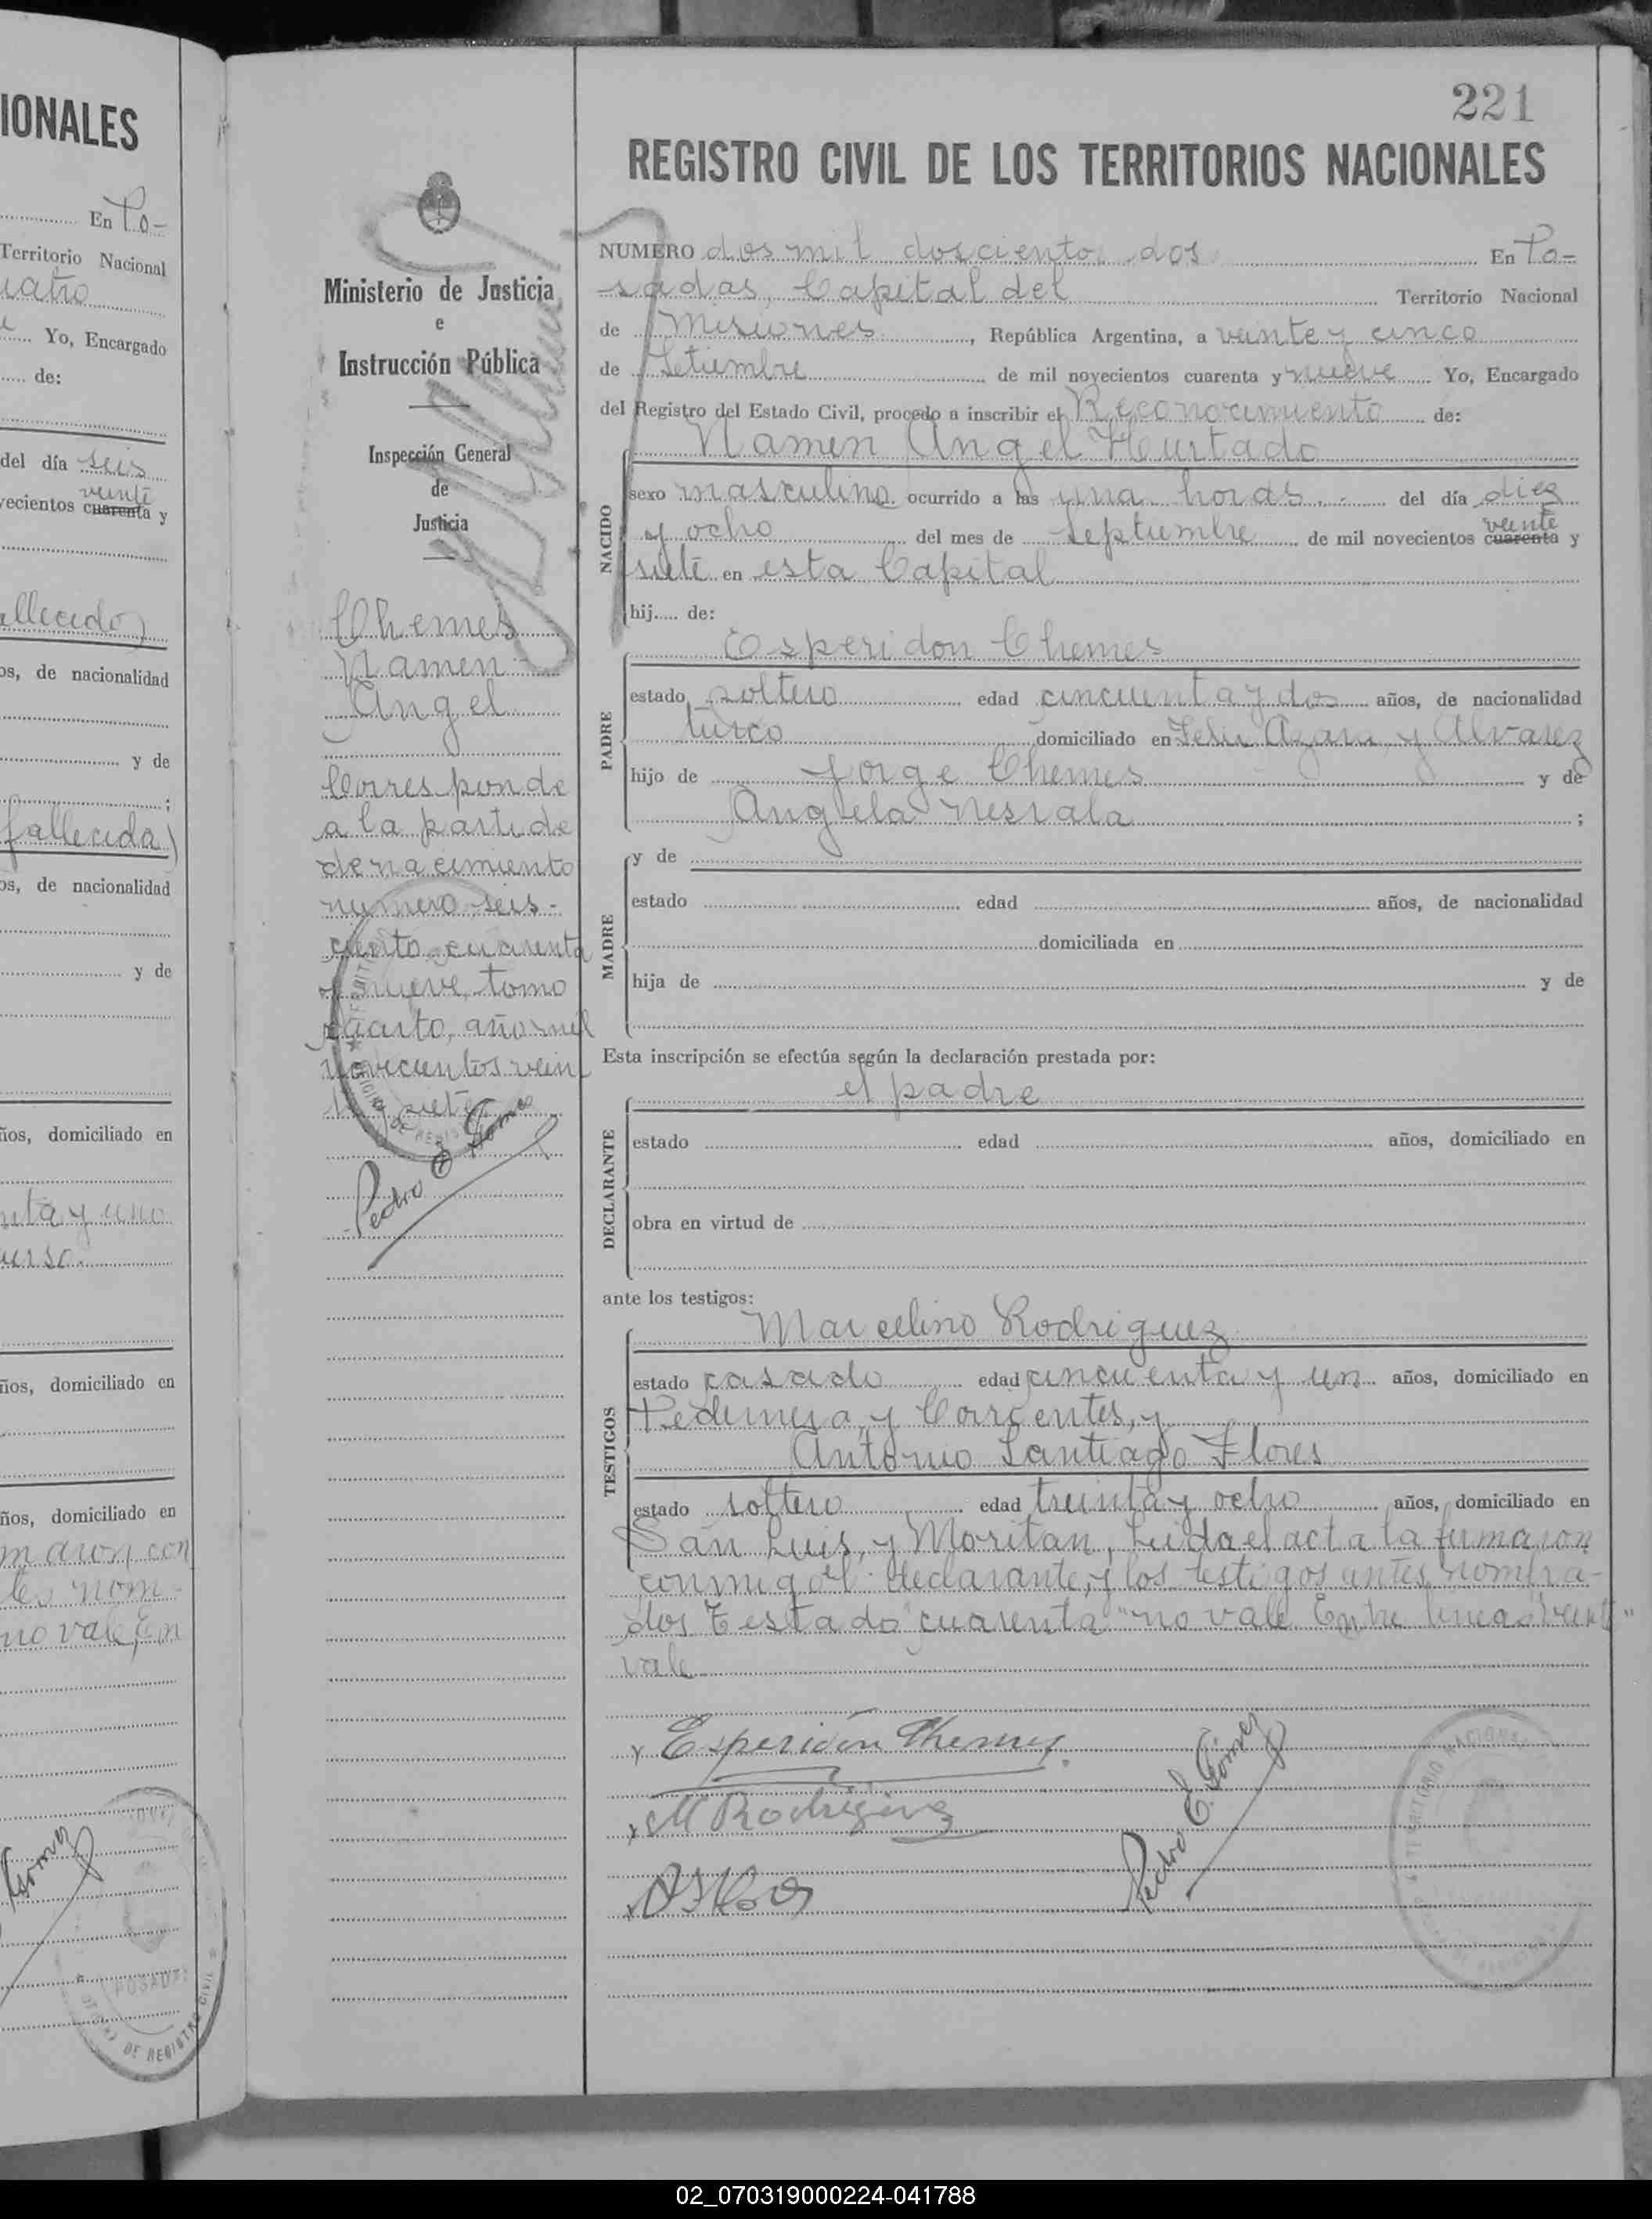 IONALES
En Po-
Territorio Nacional
uatro
Yo, Encargado
de:
del día seis
veinte
vecientos cuarenta y
allecido)
os, de nacionalidad
y de
;
fallecida)
os, de nacionalidad
y de
ños, domiciliado en
nta y uno
urso.
ños, domiciliado en
ños, domiciliado en
maron con
nom-
no vale, En
POSADAS
DE REGISTRO CIVIL
Ministerio de Justicia
e
Instrucción Pública
Inspección General
de
Justicia
Chemes
Namen
Angel
Corresponde
a la partida
de nacimiento
numero seis-
ciento cuarenta
y nueve, tomo
cuarto, año mil
novecientos vein
te y siete
Pedro E. Gómez
221
REGISTRO CIVIL DE LOS TERRITORIOS NACIONALES
NUMERO dos mil doscientos dos En Po-
sadas, Capital del Territorio Nacional
de Misiones, República Argentina, a veinte y cinco
de Setiembre de mil novecientos cuarenta y nueve Yo, Encargado
del Registro del Estado Civil, procedo a inscribir el Reconocimiento de:
Namen Angel Hurtado
NACIDO
sexo masculino ocurrido a las una horas.- del día diez
veinte
y ocho del mes de septiembre de mil novecientos cuarenta y
siete en esta Capital
hij.... de:
Esperidon Chemes
PADRE
estado soltero edad cincuenta y dos años, de nacionalidad
turco domiciliado en Felix Azara y Alvarez
hijo de Jorge Chemes y de
Angela Nesrala ;
MADRE
y de
estado edad años, de nacionalidad
domiciliada en
hija de y de
Esta inscripción se efectúa según la declaración prestada por:
el padre
DECLARANTE
estado edad años, domiciliado en
obra en virtud de
ante los testigos:
Marcelino Rodriguez
TESTIGOS
estado casado edad cincuenta y un años, domiciliado en
Pedernera y Corrientes, y
Antonio Santiago Flores
estado soltero edad treinta y ocho años, domiciliado en
San Luis, y Moritan, Leida el acta la firmaron
conmigo el declarante, y los testigos antes nombra-
dos Testado "cuarenta" no vale. Entre lineas "veinte"
vale
x Esperidón Chemes
x M Rodriguez
Pedro E. Gómez
TERRITORIO NACIONAL
02_070319000224-041788